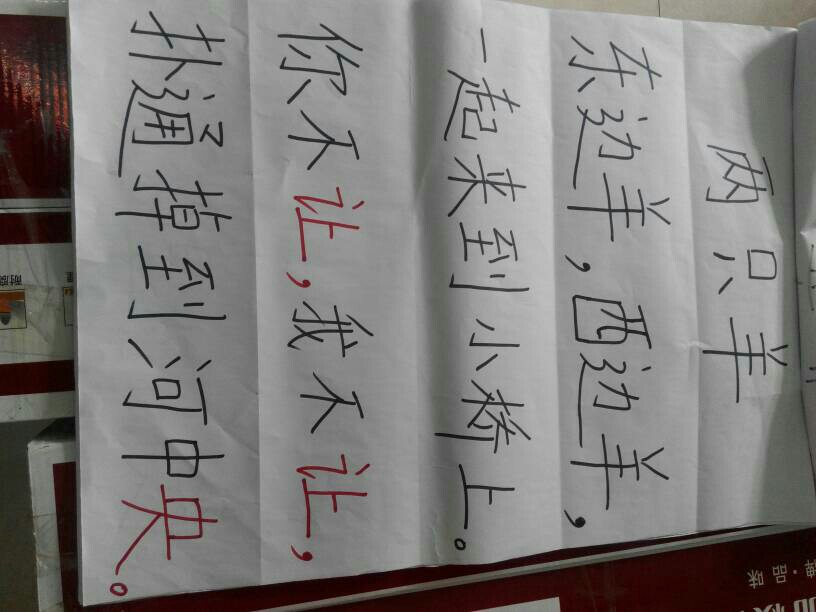 两只羊
东边羊,西边羊,
一起来到小桥上。
你不让,我不让,
扑通掉到河中央。
牌·品味
耐腐